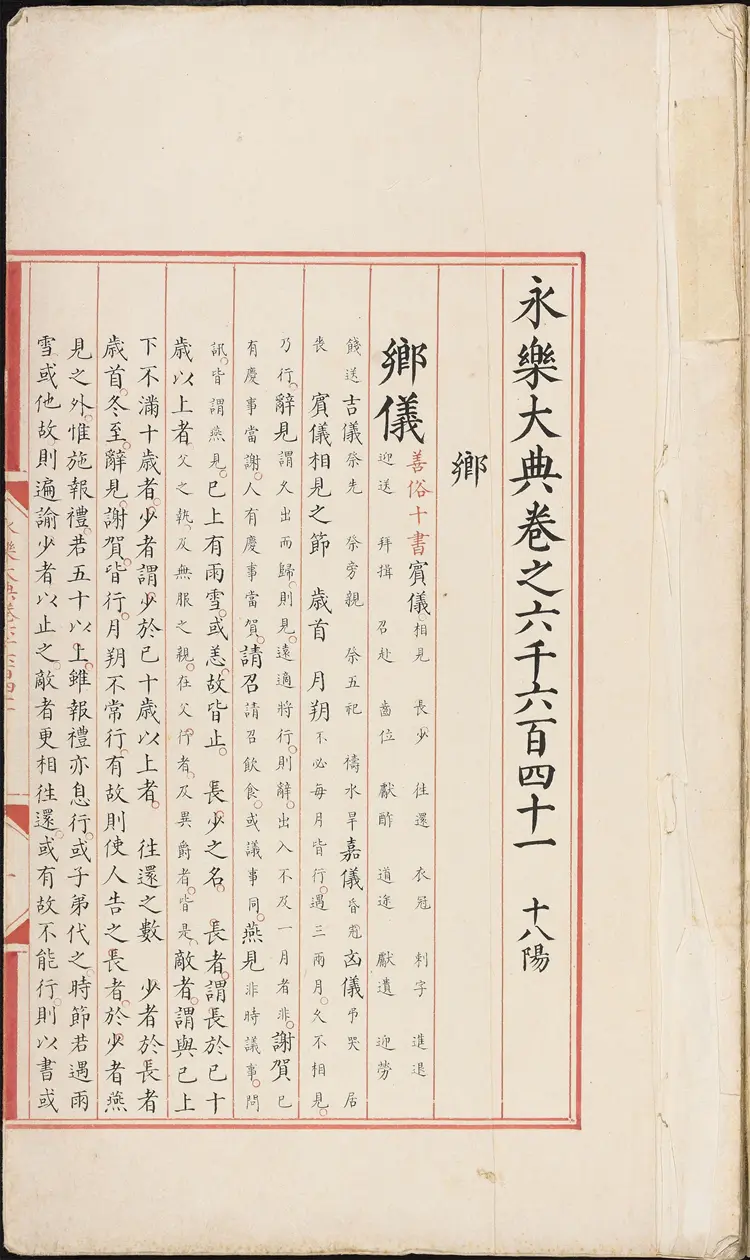 永樂大典卷之六千六百四十一 十八陽
鄉
鄉儀 善俗十書賓儀。相見 長少 往還 衣冠 刺字 進退
迎送 拜揖 召赴 齒位 獻酢 道途 獻遺 迎勞
餞送吉儀祭先 祭旁親 祭五祀 禱水旱嘉儀昏冠凶儀弔哭 居
喪 賓儀相見之節 歲首 月朔不必每月皆行。遇三兩月。久不相見。
乃行。辭見謂久出而歸。則見。遠適將行。則辭。出入不及一月者非。謝賀已
有慶事當謝。人有慶事當賀。請召請召飲食。或議事同。燕見非時議事。問
訊。皆謂燕見。已上有雨雪。或恙故皆止。 長少之名 長者。謂長於已十
歲以上者。父之執。及無服之親。在父行者。及異爵者。皆是。敵者。謂與已上
下不滿十歲者。少者。謂少於已十歲以上者。 往還之數 少者於長者
歲首。冬至。辭見。謝賀。皆行。月朔不常行。有故則使人告之。長者。於少者燕
見之外。惟施報禮。若五十以上。雖報禮亦息行。或子弟代之。時節若遇雨
雪或他故。則遍諭少者以止之。敵者更相往還。或有故不能行。則以書或